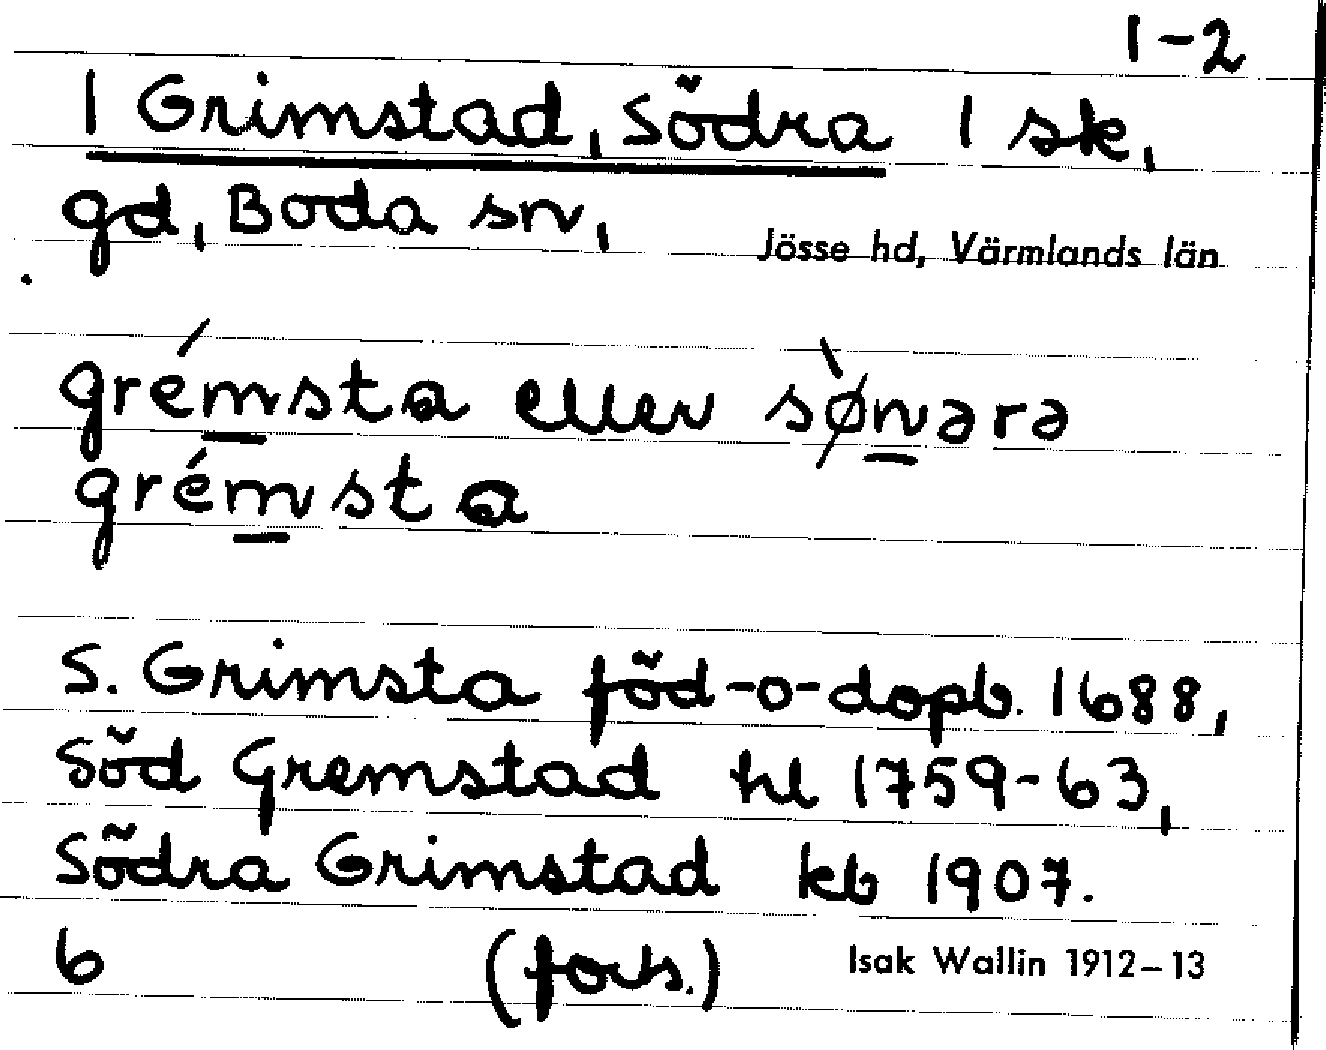 1-2
1 Grimstad, Södra 1 sk,
gd, Boda sn,
Jösse hd, Värmlands län
grémsta eller sø̀nəra
grémsta
S. Grimsta föd-o-dopb. 1688,
Söd Gremstad hl 1759-63,
Södra Grimstad kb 1907.
6 (forts.) Isak Wallin 1912-13